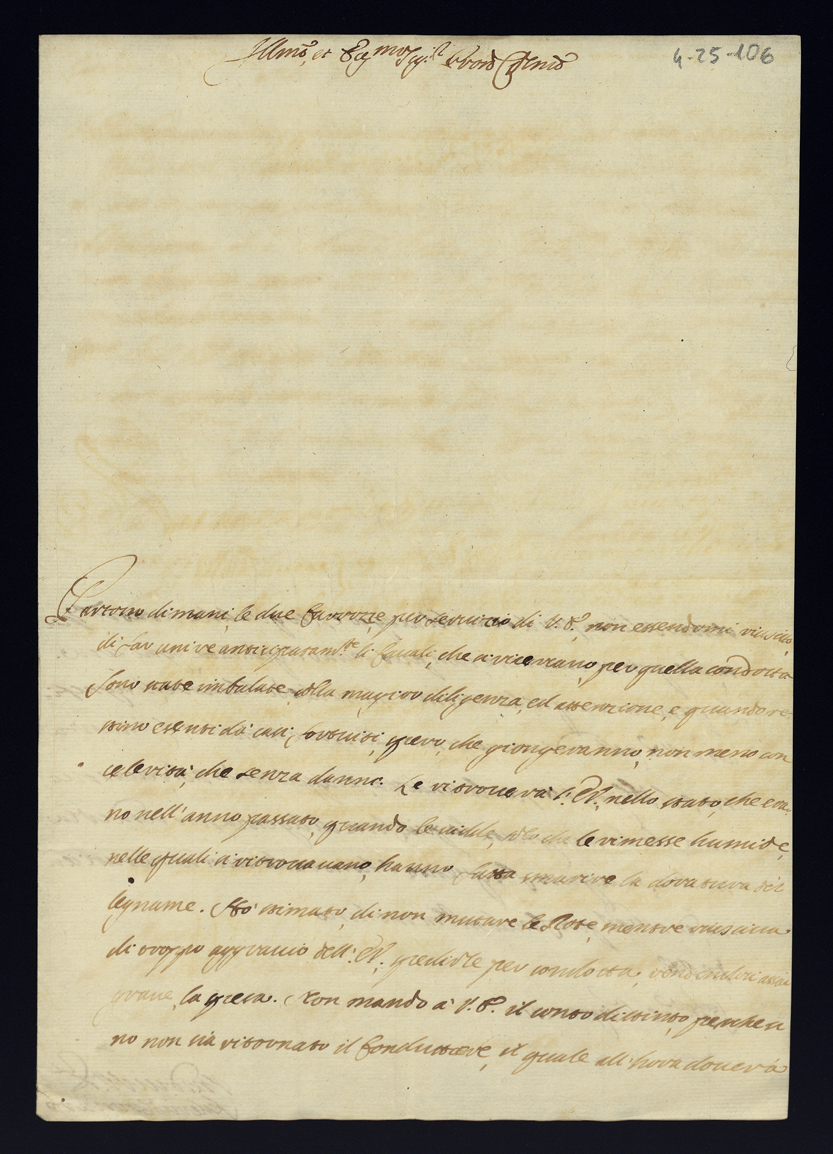 Illmo, et Ecc.mo Sig.r
4-25-106
Partono dimani, le due Carrozze, per servizio di V. E., non essendomi riuscito
di far unire anticipatam.te li Cavali, che si ricercano, per quella condotta
Sono state imbalate, colla magior diligenza, ed attenzione, e quando re-
stino esenti dà casi fortuiti, spero, che giongeranno, non meno con
celerità, che senza danno. Le ritroverà l'E.V. nello stato, che era-
no nell'anno passato, quando le vidde, solo che le rimesse humide,
nelle quali si ritrovavano, hanno fatto smarire la doratura del
legname. Hò stimato, di non mutare le Rote, mentre riusciva
di troppo aggravio dell'E.V. spedirle per condotta, rendendosi assai
grave, la spesa. Non mando à V. E. il conto distinto, perche fi
no non sia ritornato il Conduttiere, il quale all'hora doverà